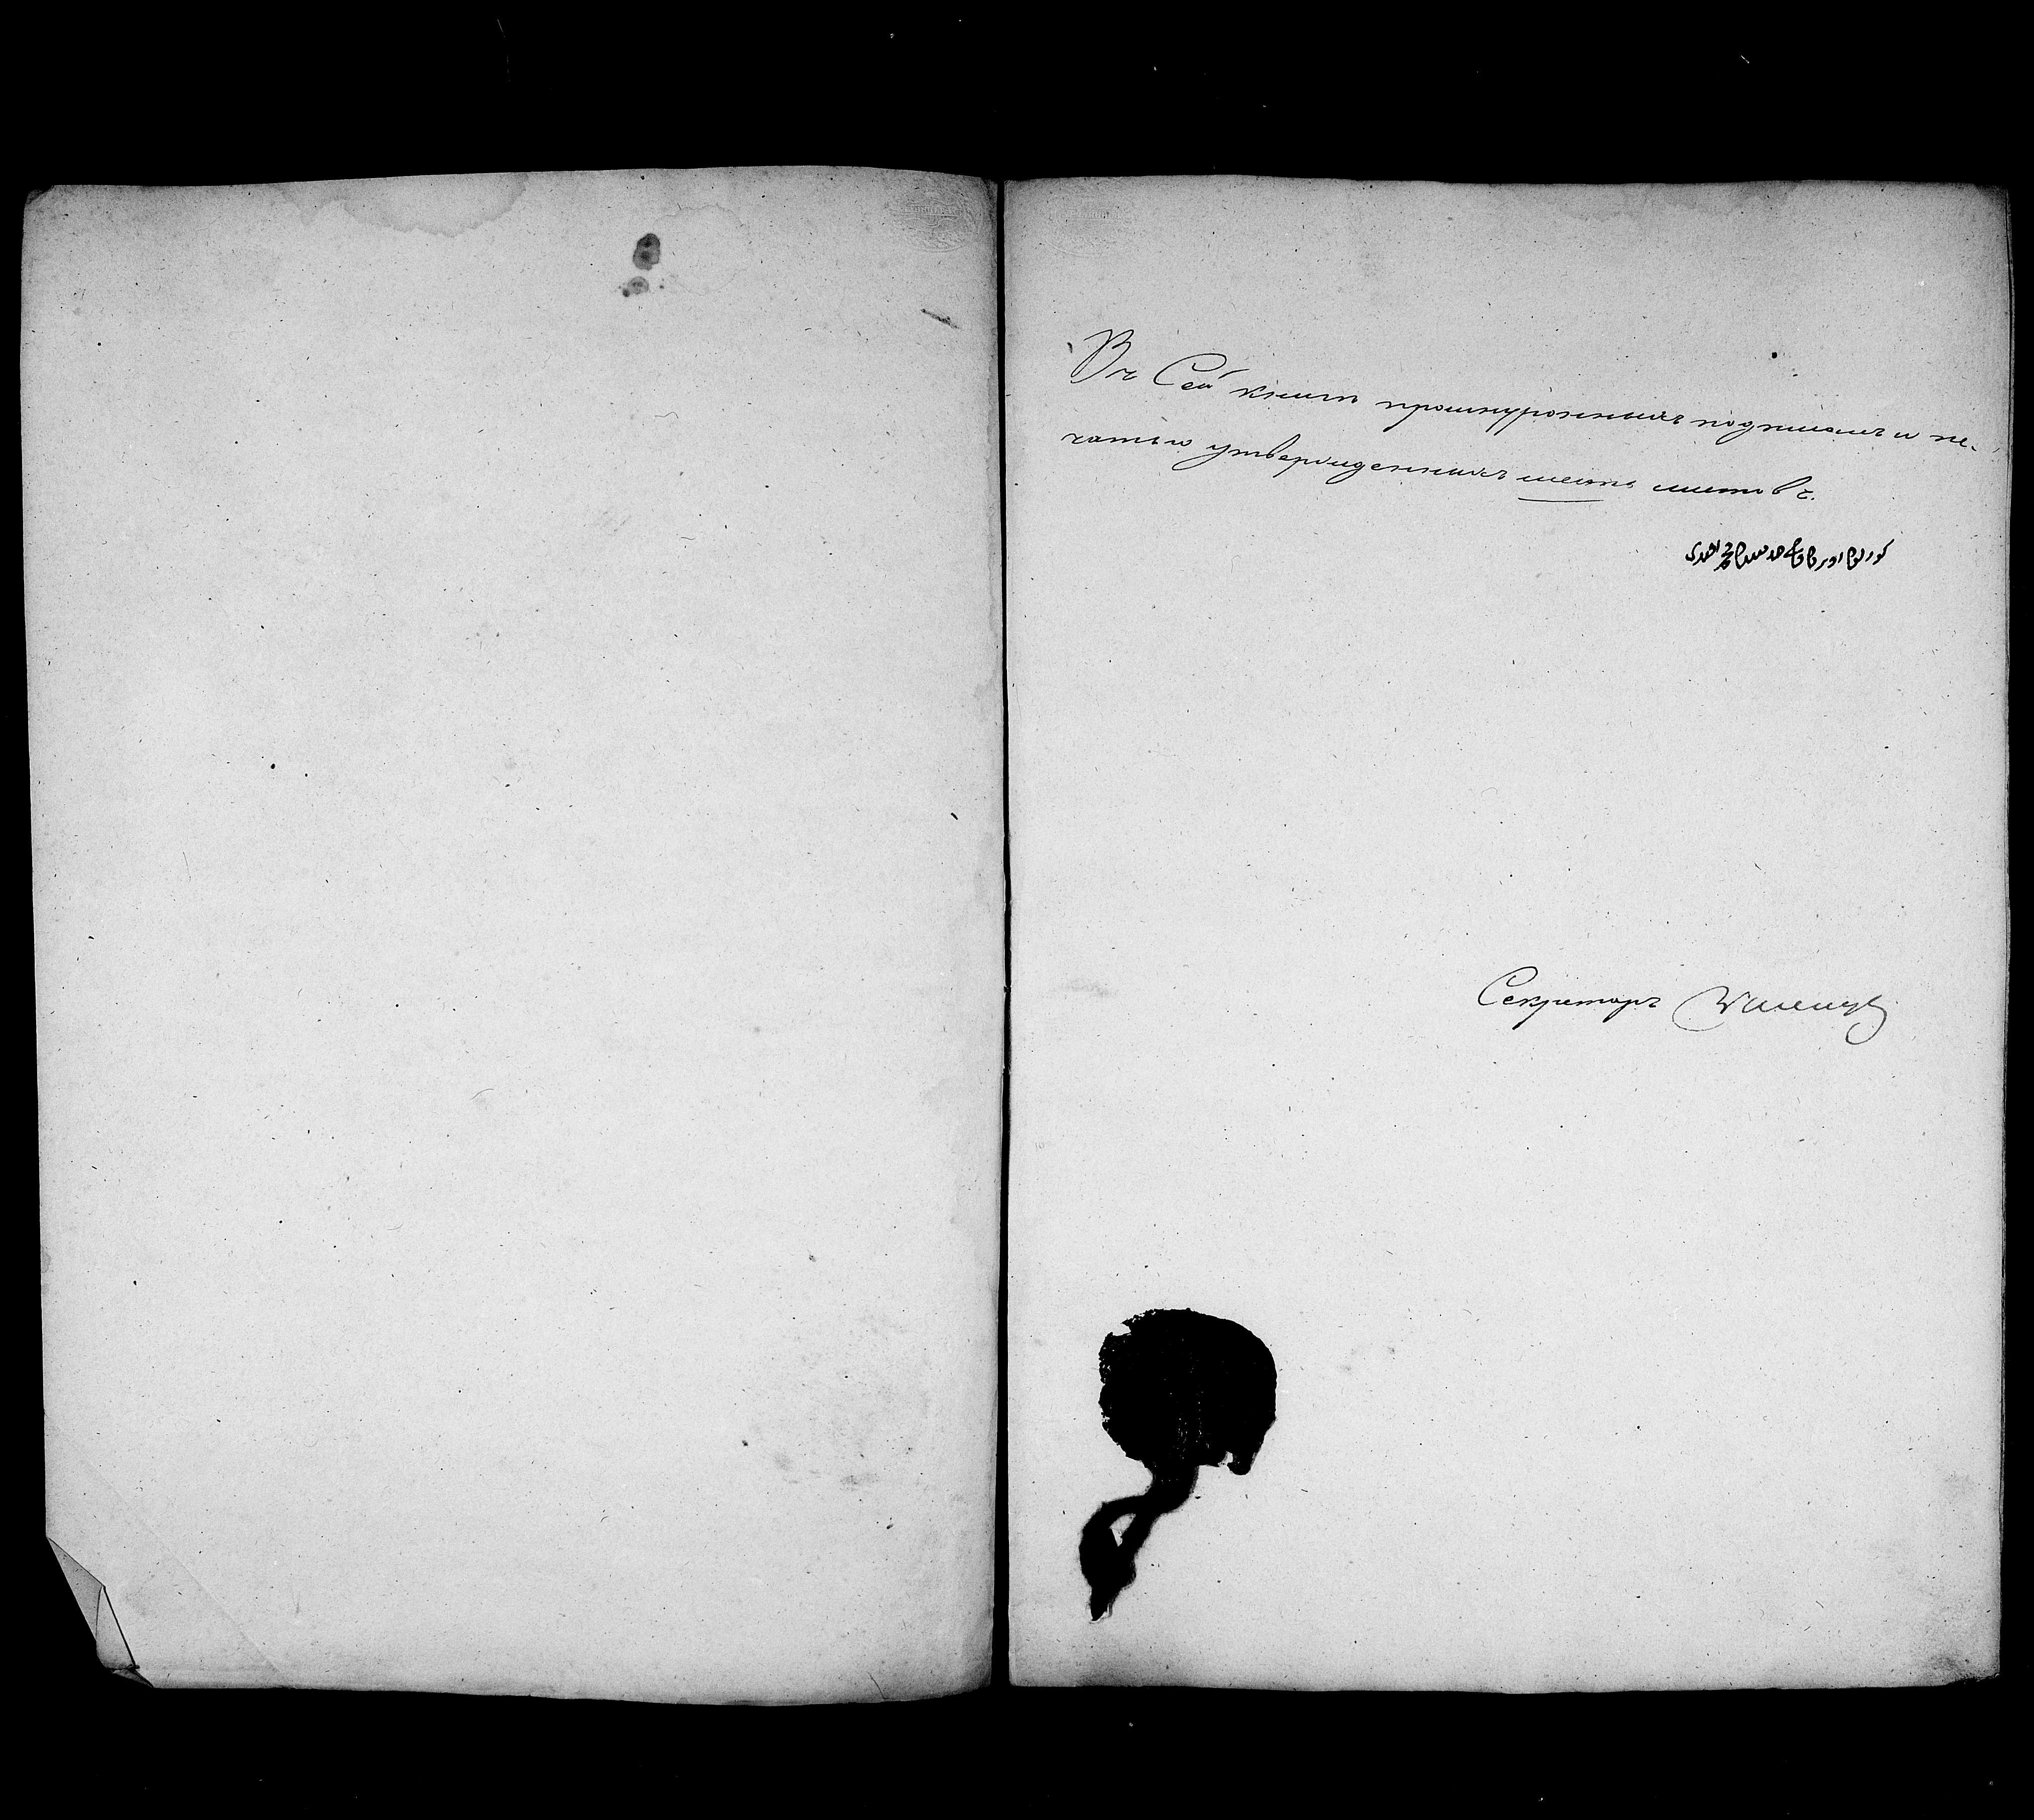 Въ Сей книгѣ прошнурованныхъ подписомъ и пе-
чатью утвержденныхъ шесть листовъ.
Секретарь